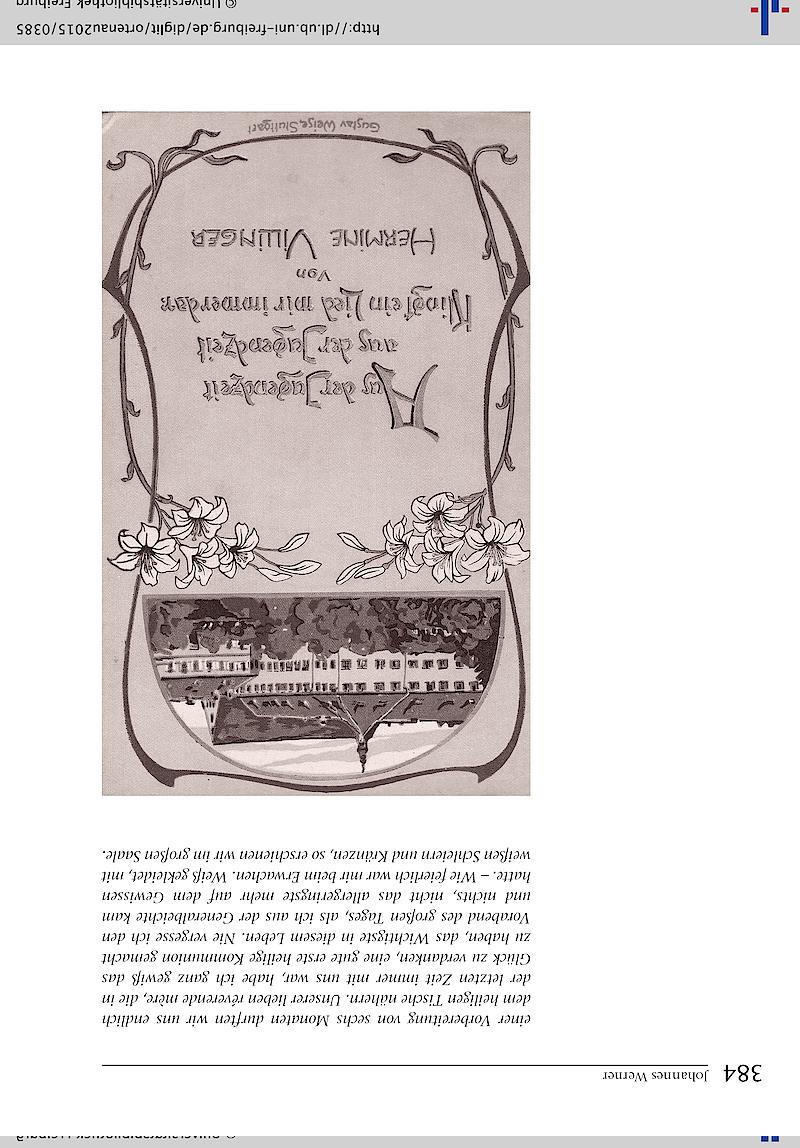 384
Johannes Werner
einer Vorbereitung von sechs Monaten durften wir uns endlich
dem heiligen Tische nähern. Unserer lieben révérende mère, die in
der letzten Zeit immer mit uns war, habe ich ganz gewiß das
Glück zu verdanken, eine gute erste heilige Kommunion gemacht
zu haben, das Wichtigste in diesem Leben. Nie vergesse ich den
Vorabend des großen Tages, als ich aus der Generalbeichte kam
und nichts, nicht das allergeringste mehr auf dem Gewissen
hatte. – Wie feierlich war mir beim Erwachen. Weiß gekleidet, mit
weißen Schleiern und Kränzen, so erschienen wir im großen Saale.
Aus der Jugendzeit
aus der Jugendzeit
Klingt ein Lied mir immerdar.
Von
HERMINE VILLINGER
Gustav Weise, Stuttgart
http://dl.ub.uni-freiburg.de/diglit/ortenau2015/0385
© Universitätsbibliothek Freiburg